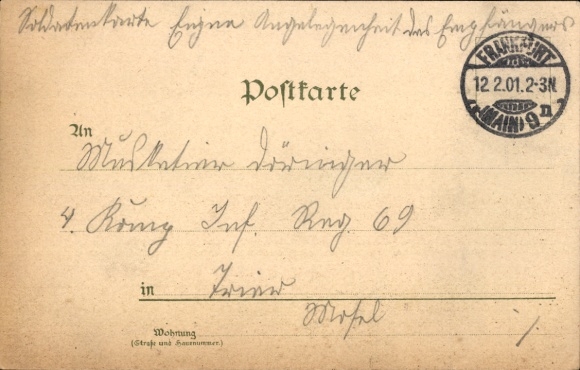 Soldatenkarte Eigene Angelegenheit des Empfängers
FRANKFURT
12 2.01.2-3N.
(MAIN) 9 n
Postkarte
An
Musketier Döringer
4. Komp Inf. Reg 69
in Trier
Mosel
Wohnung
(Straße und Hausnummer.)